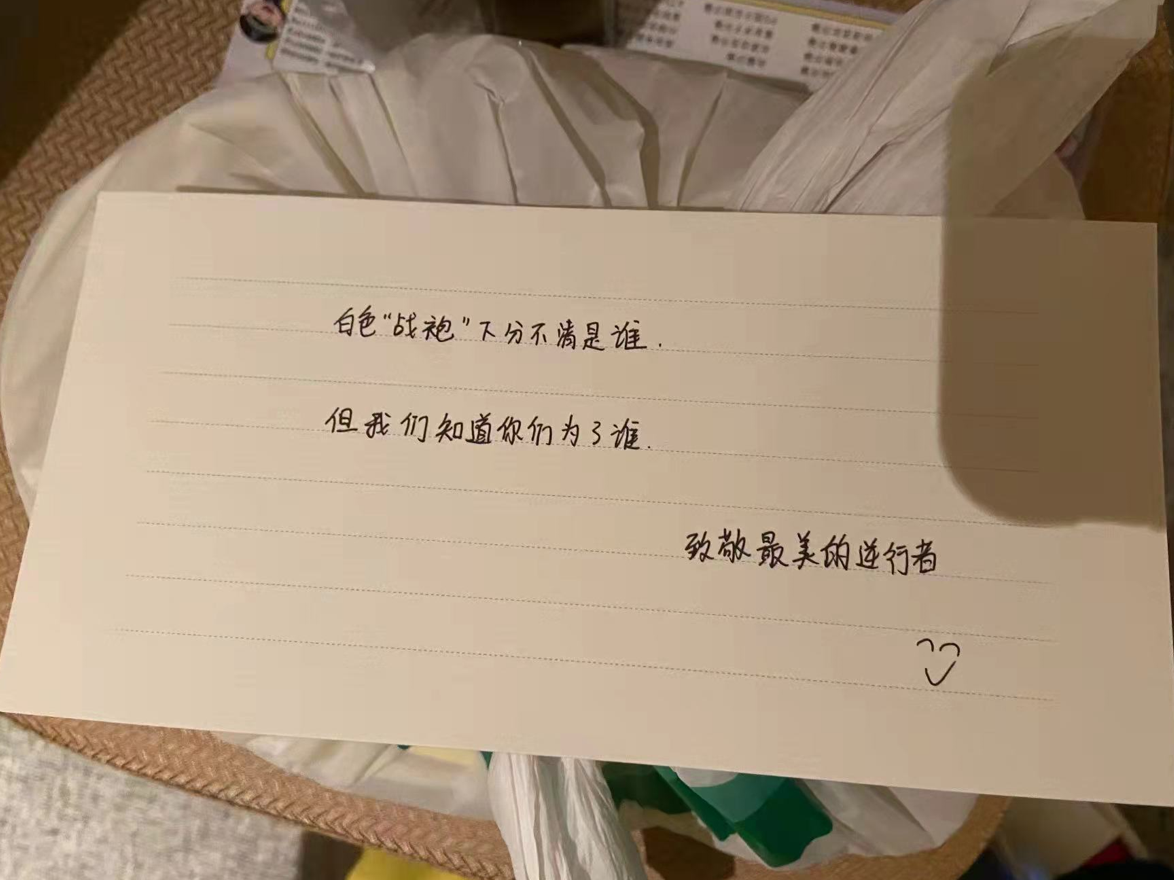 白色“战袍”下分不清是谁.
但我们知道你们为了谁.
致敬最美的逆行者